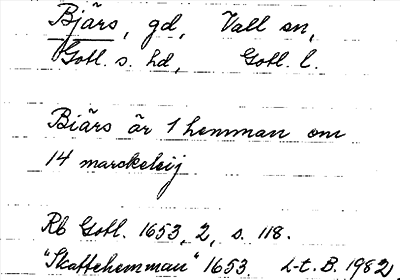 Bjärs, gd, Vall sn,
Gotl. s. hd, Gotl. l.
Biärs är 1 hemman om
14 marckeleij
Rb Gotl. 1653, 2, s. 118.
"Skattehemman" 1653 L-t. B. 1982